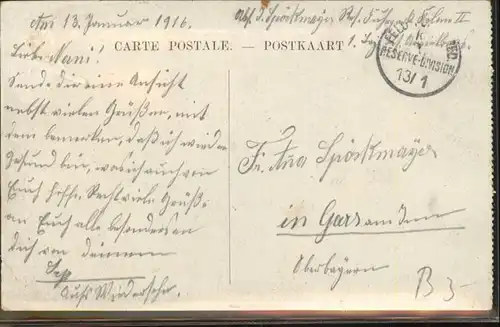 Am 13. Januar 1916.
Abs. J. Spörkmayer Res. II
CARTE POSTALE. — POSTKAART
1.
RESERVE-DIVISION
13/1
Liebe Nani!
Sende dir einen Ansicht
nebst vielen Grüßen, mit
dem bemerken, daß ich wieder
Gesund bin, was ich auch von
Euch hoffe. Recht viele Grüße
an Euch alle besonders an
dich von deinem
Sepp
Aufs Wiedersehn.
Fr. Ana Spörkmayer
in Gars am Inn
Oberbayern
B 3-